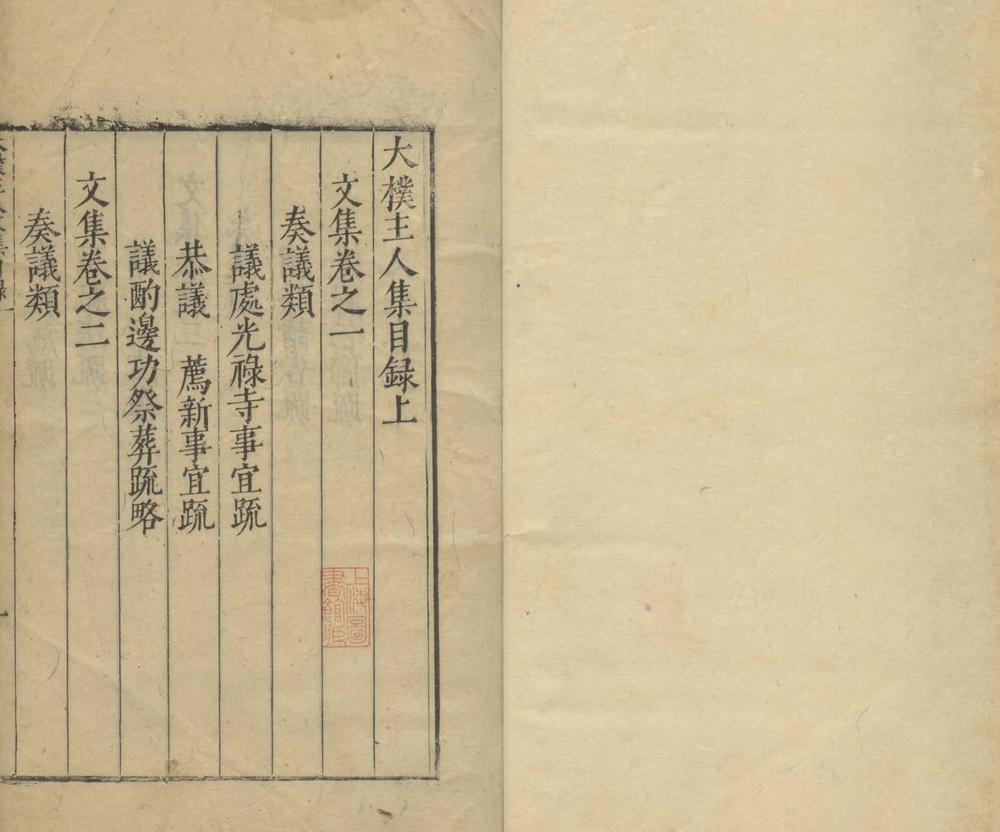 大樸主人集目録上
文集卷之一
奏議類
議處光祿寺事宜疏
恭議　薦新事宜疏
議酌邊功祭葬疏略
文集卷之二
奏議類
上海圖書館藏